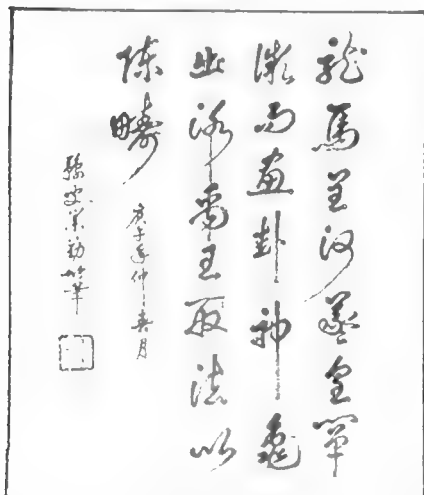 龍馬呈河羲皇闡
微而畫卦神龜
出洛禹王取法以
陳疇
庚午年仲春月
筆